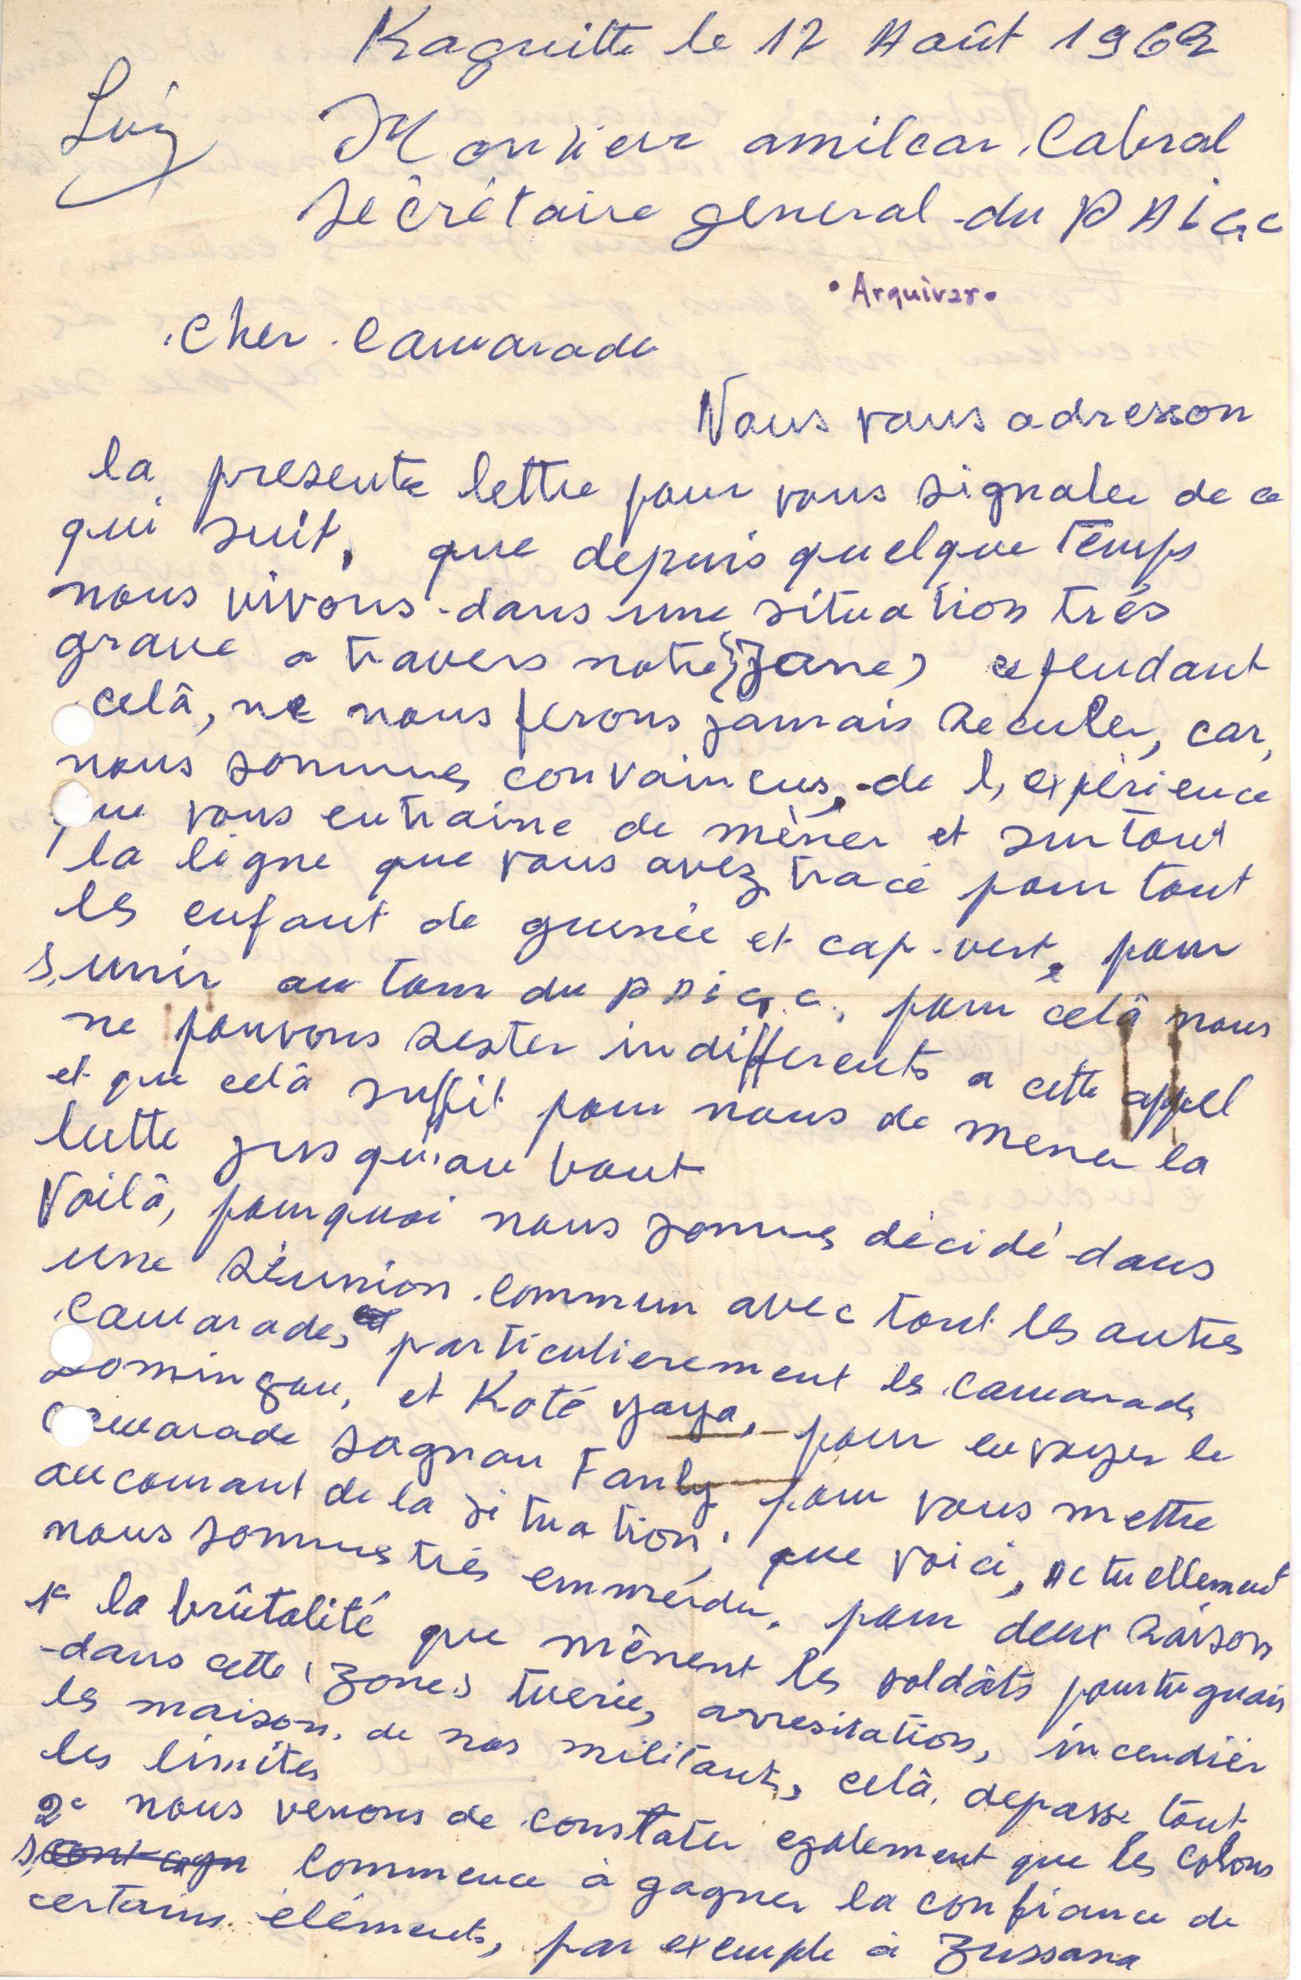 Kaguitte le 12 Août 1962
Luiz
Monsieur amilcar Cabral
Sécrétaire general du PAIGC
• Arquivar •
Cher Camarade
Nous vous adresson
la presente lettre pour vous signaler de ce
qui suit, que depuis quelque temps
nous vivons dans une situation trés
grave a travers notre (zone) cependant
celà, ne nous ferons jamais reculer, car,
nous sommes convaincus, de l, expérience
que vous entraine de mèner et surtout
la ligne que vous avez tracé pour tout
les enfant de guinée et cap-vert, pour
s,unir autour du PAIGC, pour celà nous
ne pouvons rester indifferents a cette appel
et que celà suffit pour nous de mener la
lutte jusqu'au bout
Voilà, pourquoi nous sommes décidé dans
une réunion commun avec tout les autres
camarades, particulierement les camarade
Domingou, et Koté yaya, pour envoyer le
camarade Sagnau Fanly pour vous mettre
au courant de la situation, que voici, Actuellement
nous sommes trés emmerdu, pour deux raison
1e la brûtalité que mènent les soldâts pourtuguais
dans cette (zone) tuerie, arresitation, incendiér
les maison de nos militants, celà, depasse tout
les limites
2e nous venons de constater egalement que les colons
commence à gagner la confiance de
certains éléments, par exemple à Zussana